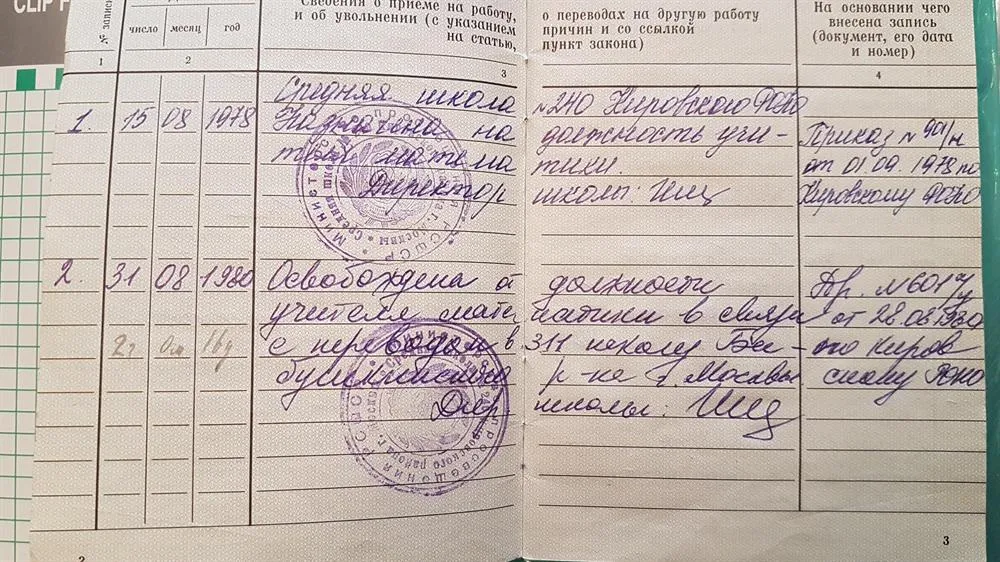 CLIP
№ записи
число месяц год
Сведения о приеме на работу,
и об увольнении (с указанием
на статью,
о переводах на другую работу
причин и со ссылкой
пункт закона)
На основании чего
внесена запись
(документ, его дата
и номер)
1 2 3 4
Средняя школа №240 Кировского РОНО
1. 15 08 1978 Назначена на должность учи-
теля математики.
Директор школы:
Приказ №
от 01.09.1978 по
Кировскому РОНО
2. 31 08 1980 Освобождена от должности
учителя математики в связи
с переводом в 311 школу Ба-
бушкинского р-на г. Москвы
Дир. школы:
Пр. №
от 28.08.1980
по Киров
скому РОНО
2
3